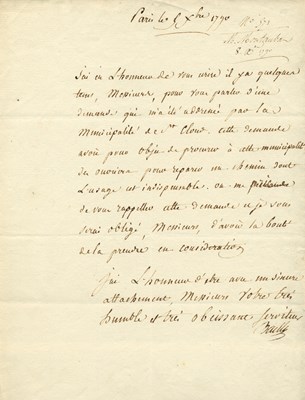 Paris le 5 Xbre 1790
J'ai eu L'honneur de vous écrire il y a quelque
tems, Messieurs, pour vous parler d'une
demande qui m'a été adressée par la
Municipalité de St Cloud, cette demande
avoit pour objet de procurer à cette municipalité
des ouvriers pour reparer un chemin dont
L'usage est indispensable. on me
de vous rappeller cette demande et je vous
serai obligé Messieurs, d'avoir la bonté
de la prendre en considération.
J'ai L'honneur d'être avec un sincere
attachement, Messieurs Votre très
humble et très obeissant serviteur
Bailly